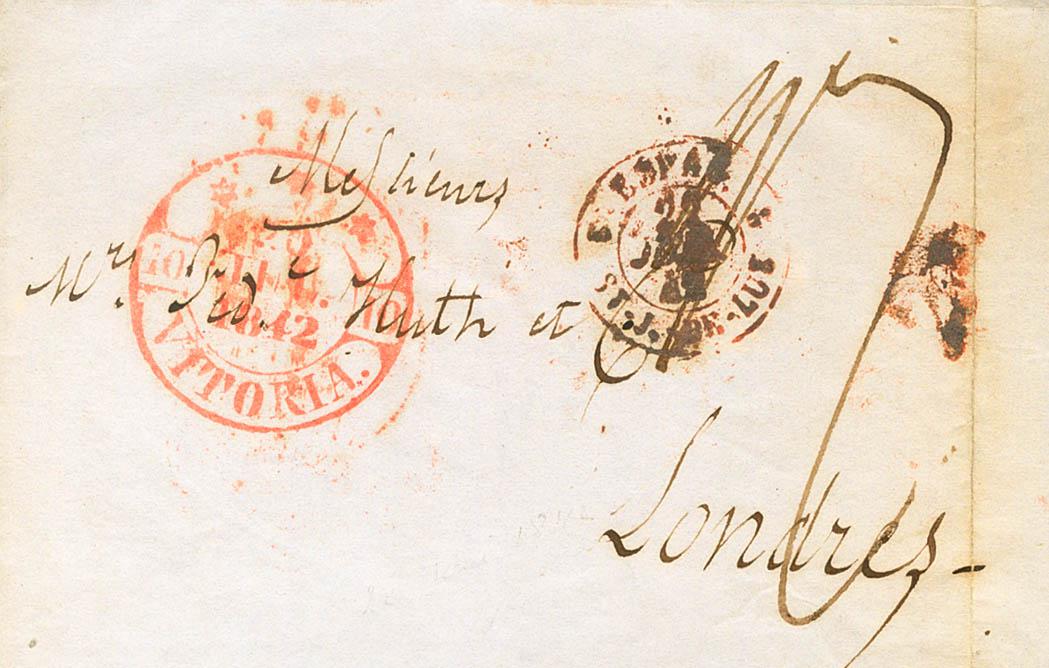 Messieurs
Mrs. Fredc. Huth et Co
Londres-
10 10
20
JUL.
1842
VITORIA.
ESPAG
ST.J.DE-LUZ